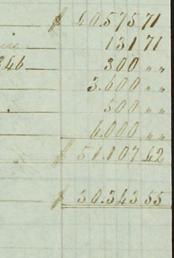 $ 40.575 71
131 71
346 300 " "
3.600 " "
500 " "
6.000 " "
$ 51.107 42
$ 30.343 55